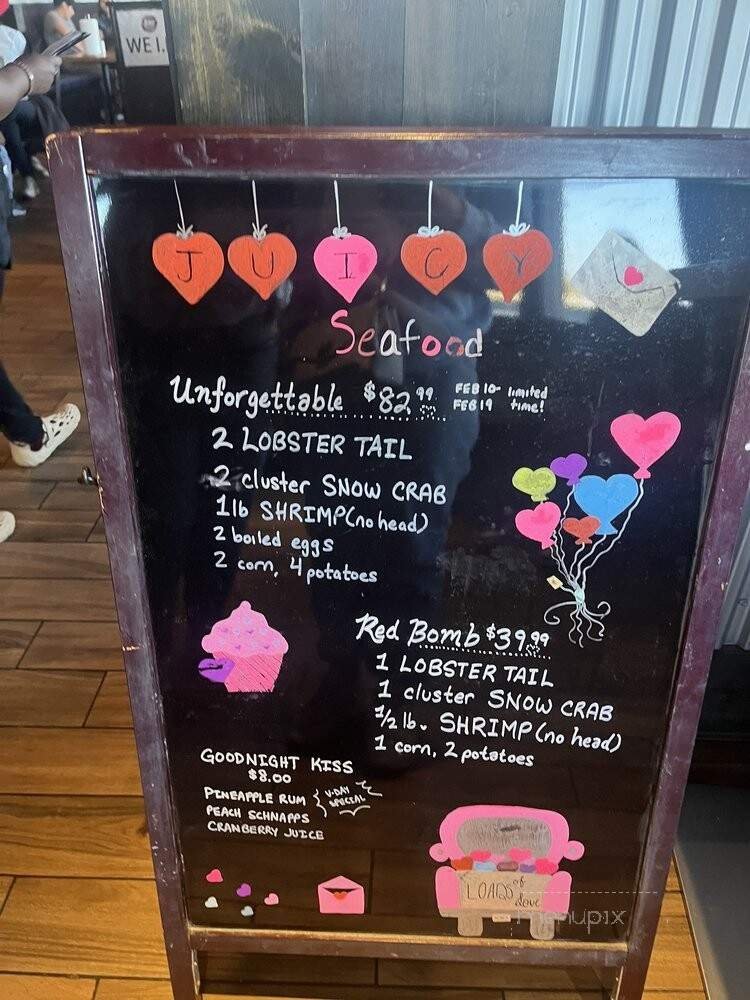 WE I.
JUICY
Seafood
Unforgettable $82.99 FEB 10- limited
FEB 19 time!
2 LOBSTER TAIL
2 cluster SNOW CRAB
1lb SHRIMP (no head)
2 boiled eggs
2 corn, 4 potatoes
Red Bomb $39.99
1 LOBSTER TAIL
1 cluster SNOW CRAB
1/2 lb. SHRIMP (no head)
1 corn, 2 potatoes
GOODNIGHT KISS
$8.00
PINEAPPLE RUM
PEACH SCHNAPPS
CRANBERRY JUICE
V-DAY
SPECIAL
LOADS of
love
menupix